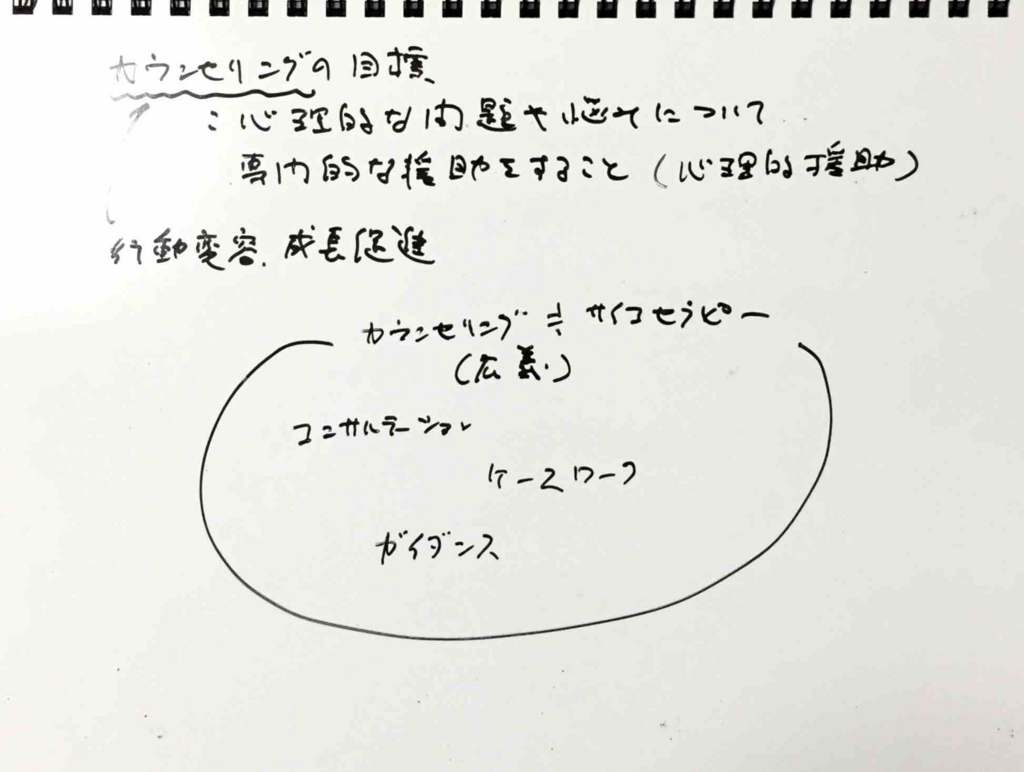 カウンセリングの目標
：心理的な問題や悩みについて
専門的な援助をすること（心理的援助）
行動変容、成長促進
カウンセリング ≒ サイコセラピー
（広義）
コンサルテーション
ケースワーク
ガイダンス